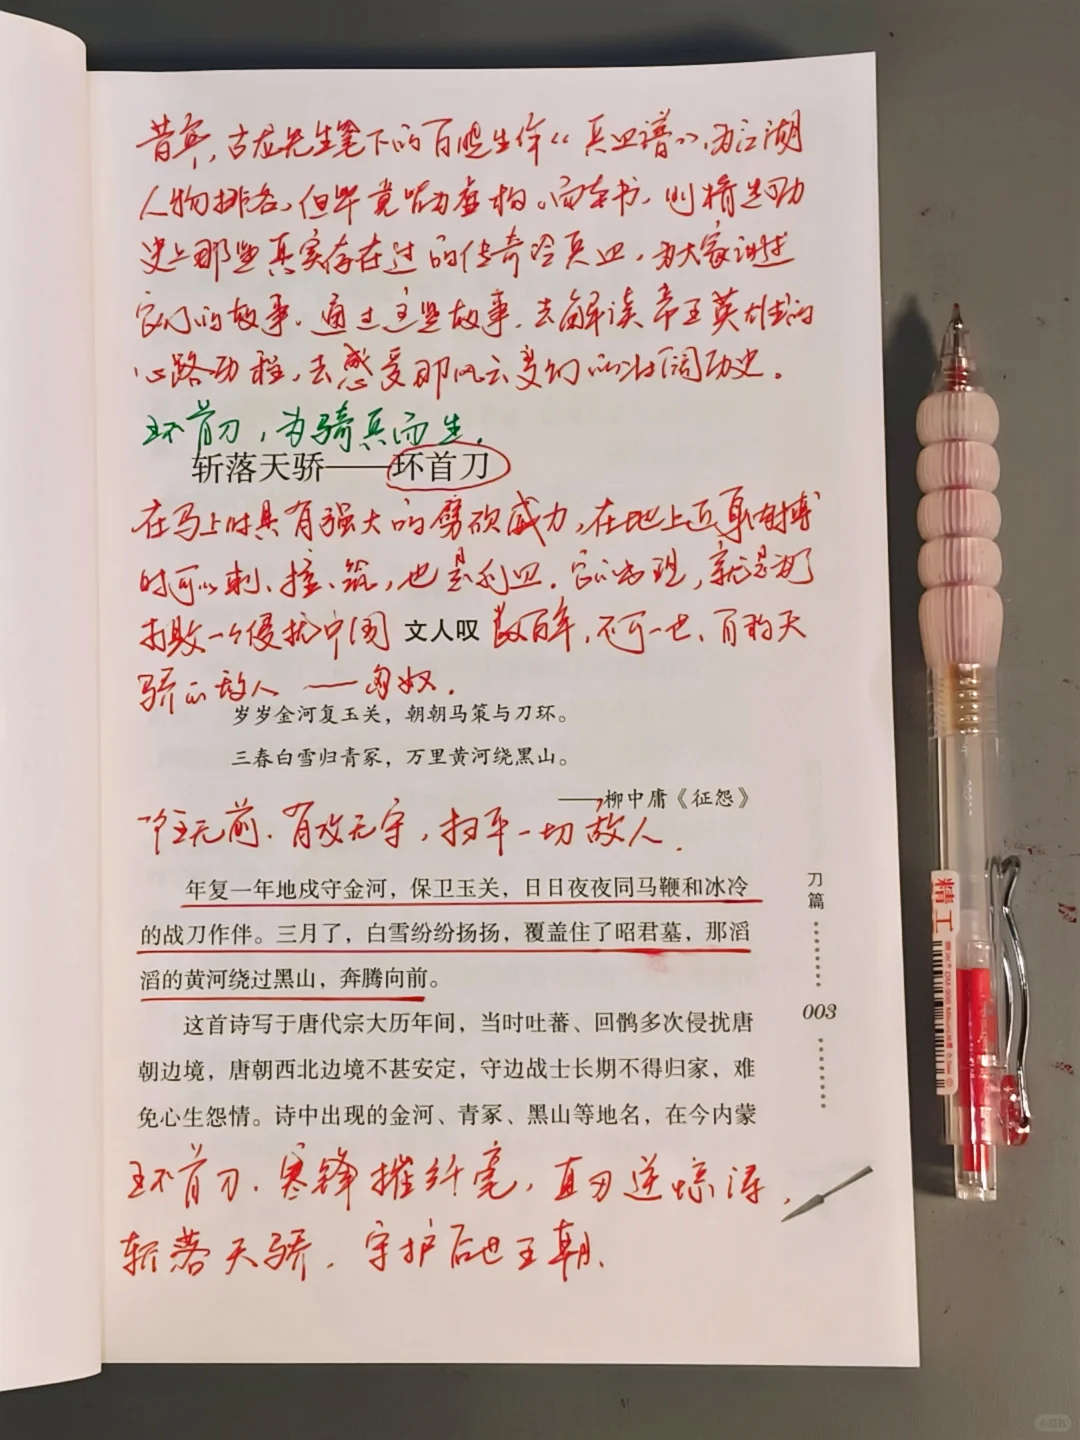 昔年，古龙先生笔下的百晓生作《兵器谱》，为江湖
人物排名，但毕竟皆为虚构。而本书，则精选历
史上那些真实存在过的传奇冷兵器，为大家讲述
它们的故事。通过这些故事，去解读帝王英雄的
心路历程，去感受那风云变幻的壮阔历史。
环首刀，为骑兵而生。
斩落天骄——环首刀
在马上时具有强大的劈砍威力，在地上近身肉搏
时可以刺、撩、，也是利器。它的出现，就是为了
打败一个侵扰中国数百年，不可一世、有称天
文人叹
骄的敌人——匈奴。
岁岁金河复玉关，朝朝马策与刀环。
三春白雪归青冢，万里黄河绕黑山。
——柳中庸《征怨》
一往无前，有攻无守，扫平一切敌人。
年复一年地戍守金河，保卫玉关，日日夜夜同马鞭和冰冷
的战刀作伴。三月了，白雪纷纷扬扬，覆盖住了昭君墓，那滔
滔的黄河绕过黑山，奔腾向前。
这首诗写于唐代宗大历年间，当时吐蕃、回鹘多次侵扰唐
朝边境，唐朝西北边境不甚安定，守边战士长期不得归家，难
免心生怨情。诗中出现的金河、青冢、黑山等地名，在今内蒙
环首刀，寒锋摧纤毫，直刃逆惊涛，
斩落天骄，守护后世王朝、
刀篇
003
精工